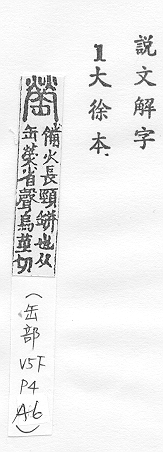 說文解字
1大徐本
罃
備火長頸缾也从
缶熒省聲烏莖切
（缶部
V5下
P4
A6）